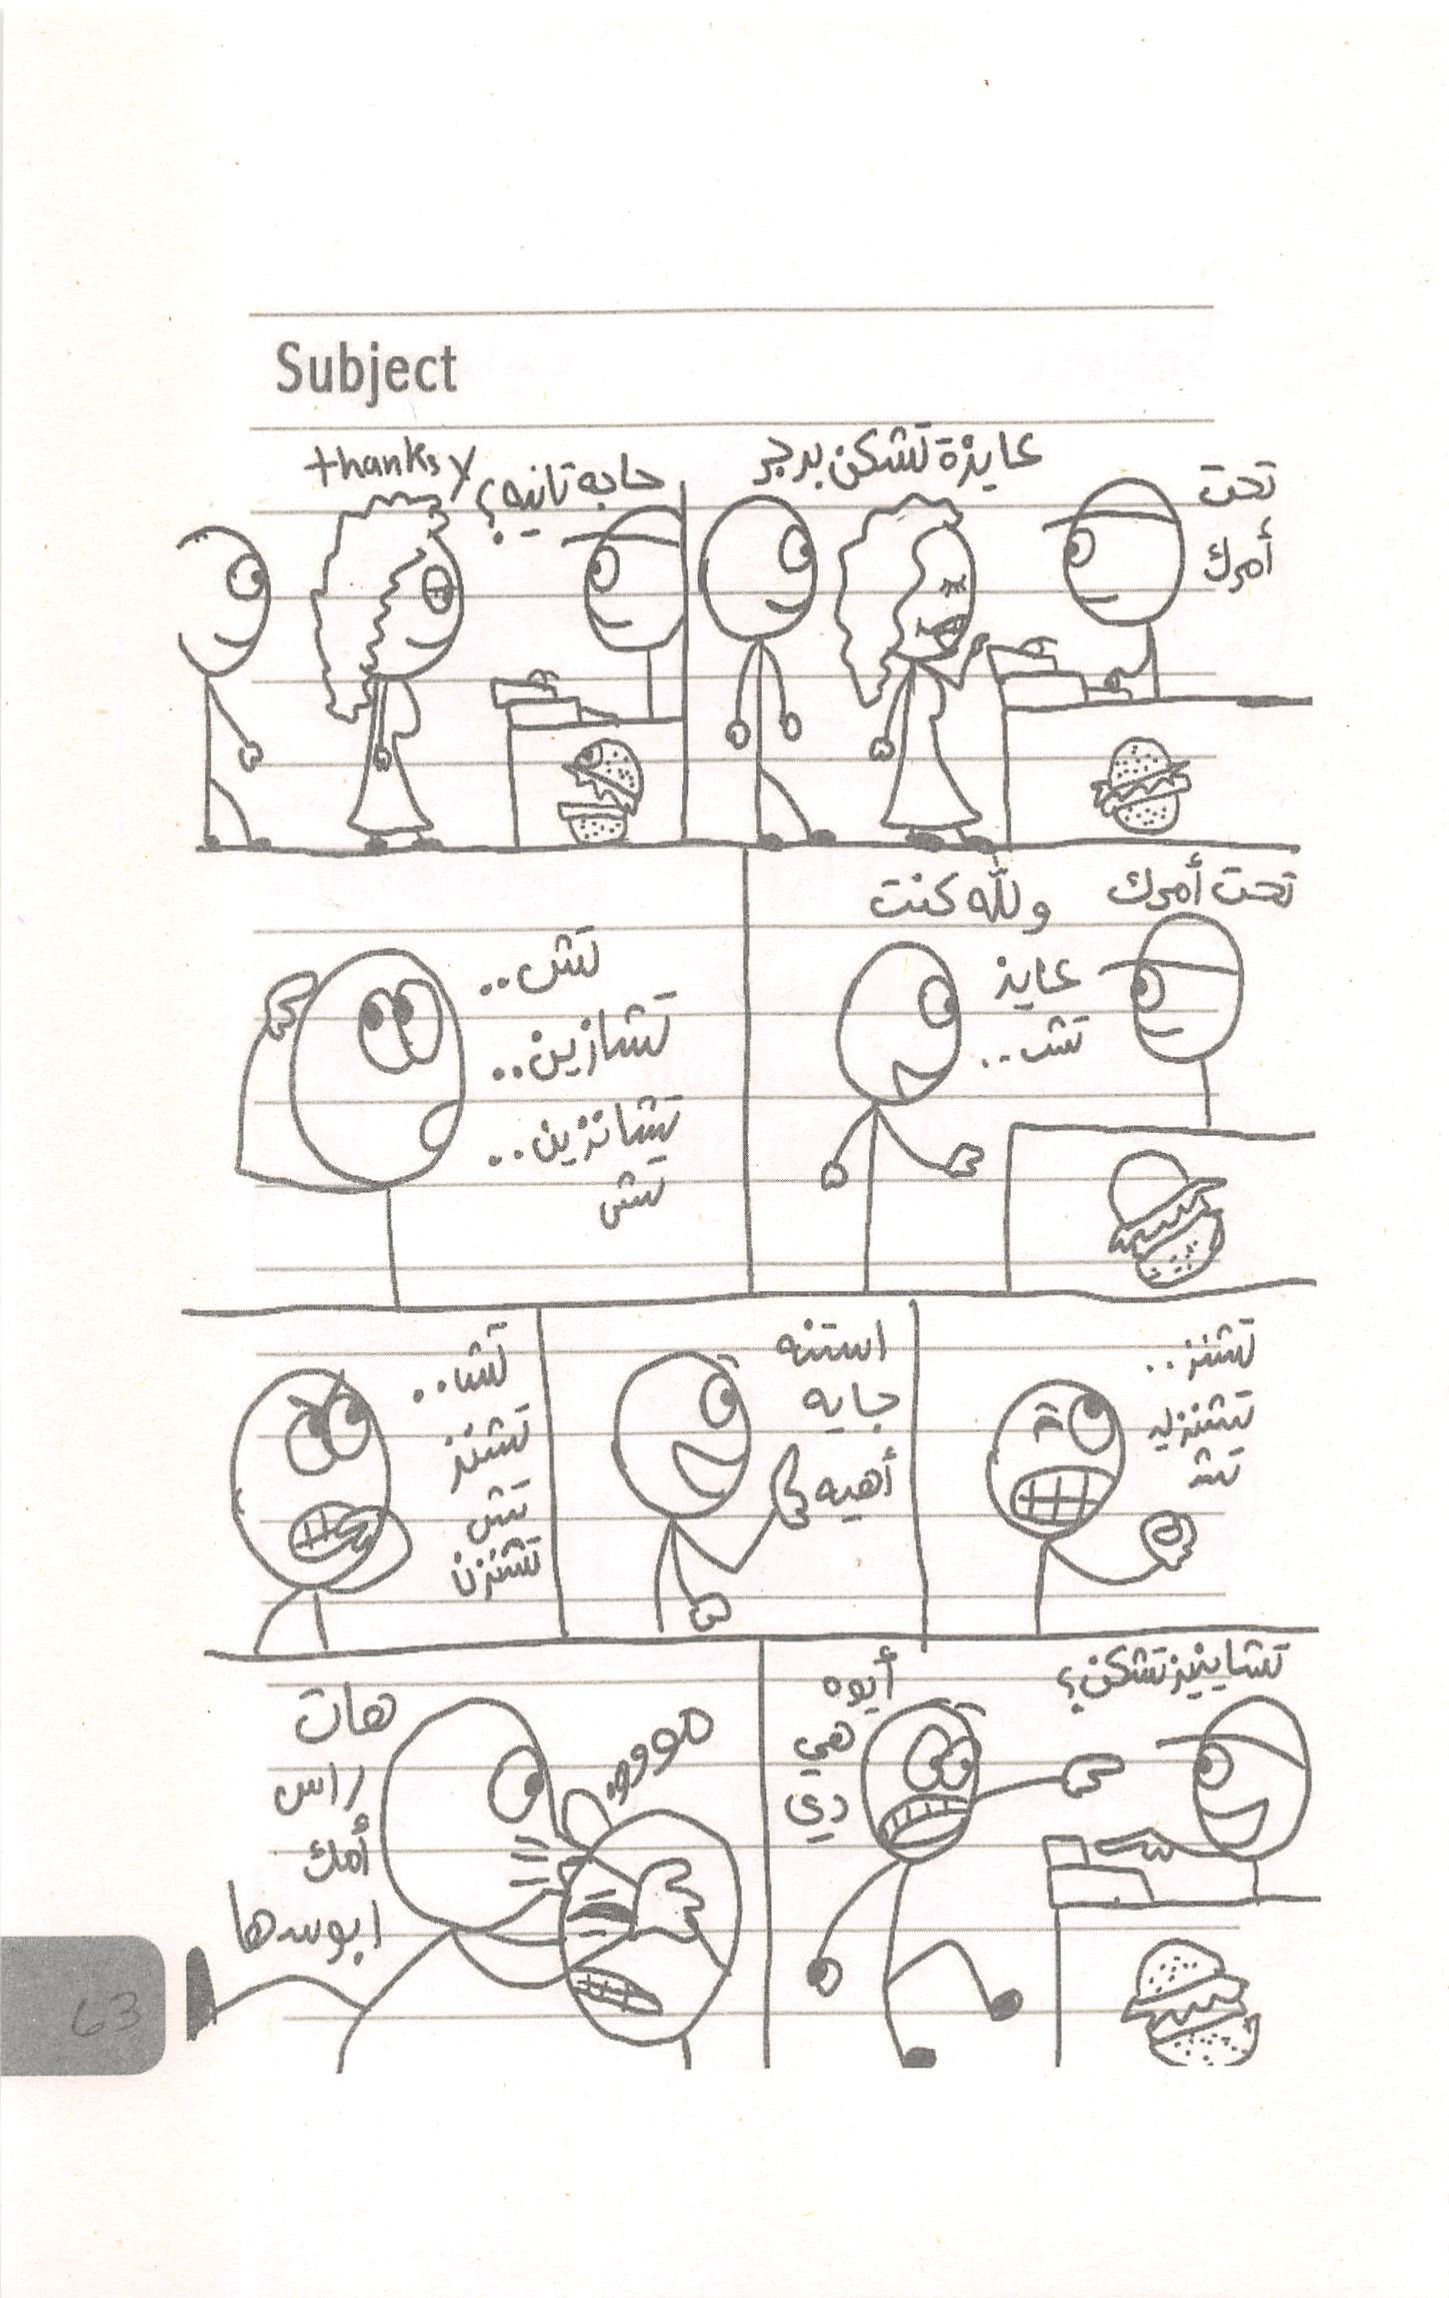 Subject
تحت
أمرك
عايزة تشكن برجر
حاجه تانيه؟
لا thanks
تحت أمرك
وللّه كنت
عايز
تشـ..
تش..
تشازين..
تشانزين..
تش
تشنز..
تشنزيـ
تشـ
استنه
جايه
أهيه
تشا..
تشنز
تش
تشنزنا
تشاينيز تشكن؟
أيوه
هي
دي
مووواه
هات
راس
أمك
ابوسها
63